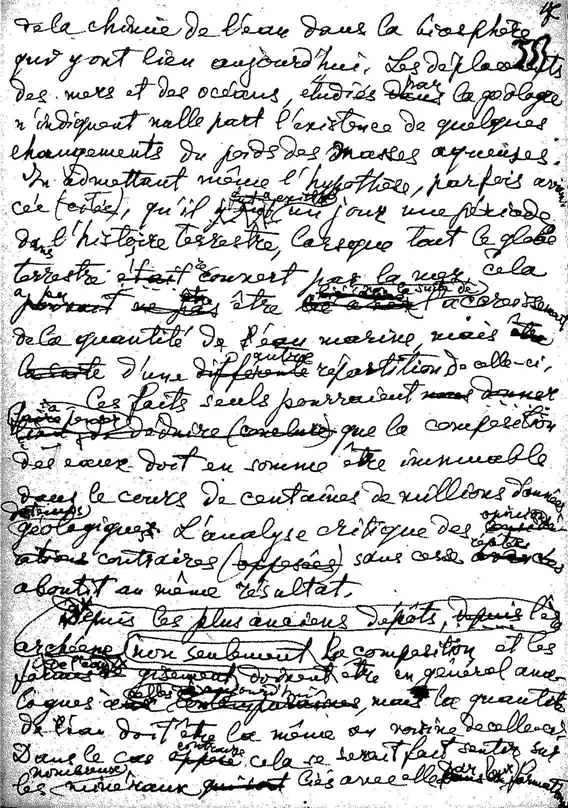 de la chimie de l'eau dans la biosphère
qui y ont lieu aujourd'hui. Les déplacements
des mers et des océans, étudiés dans par la géologie
n'indiquent nulle part l'existence de quelques
changements du poids des masses aqueuses.
En admettant même l'hypothèse, parfois avan-
cée (citée), qu'il y un jour une période
dans l'histoire terrestre, lorsque tout le globe
terrestre était couvert par la mer, cela
a pu pourrait ne pas être l'accroissement
de la quantité de l'eau marine, mais
la suite d'une différente autre répartition de celle-ci.
Ces faits seuls pourraient nous donner
déduire (conclure) que la composition
des eaux doit en somme être immuable
dans le cours de centaines de millions d'années
géologiques. L'analyse critique des opinions
contraires (opposées) sans cesse
aboutit au même résultat.
Depuis les plus anciens dépôts, depuis l'ère
archéenne non seulement la composition et les
formes de l'eau gisement, doivent être en général ana-
logues à celles d'aujourd'hui contemporaines, mais la quantité
de l'eau doit être la même ou voisine de celle-ci.
Dans le cas opposé contraire, cela se serait fait sentir sur
les nombreux minéraux qui sont liés avec elle